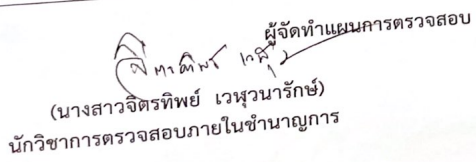 ผู้จัดทำแผนการตรวจสอบ
(นางสาวจิตรทิพย์ เวฬุวนารักษ์)
นักวิชาการตรวจสอบภายในชำนาญการ